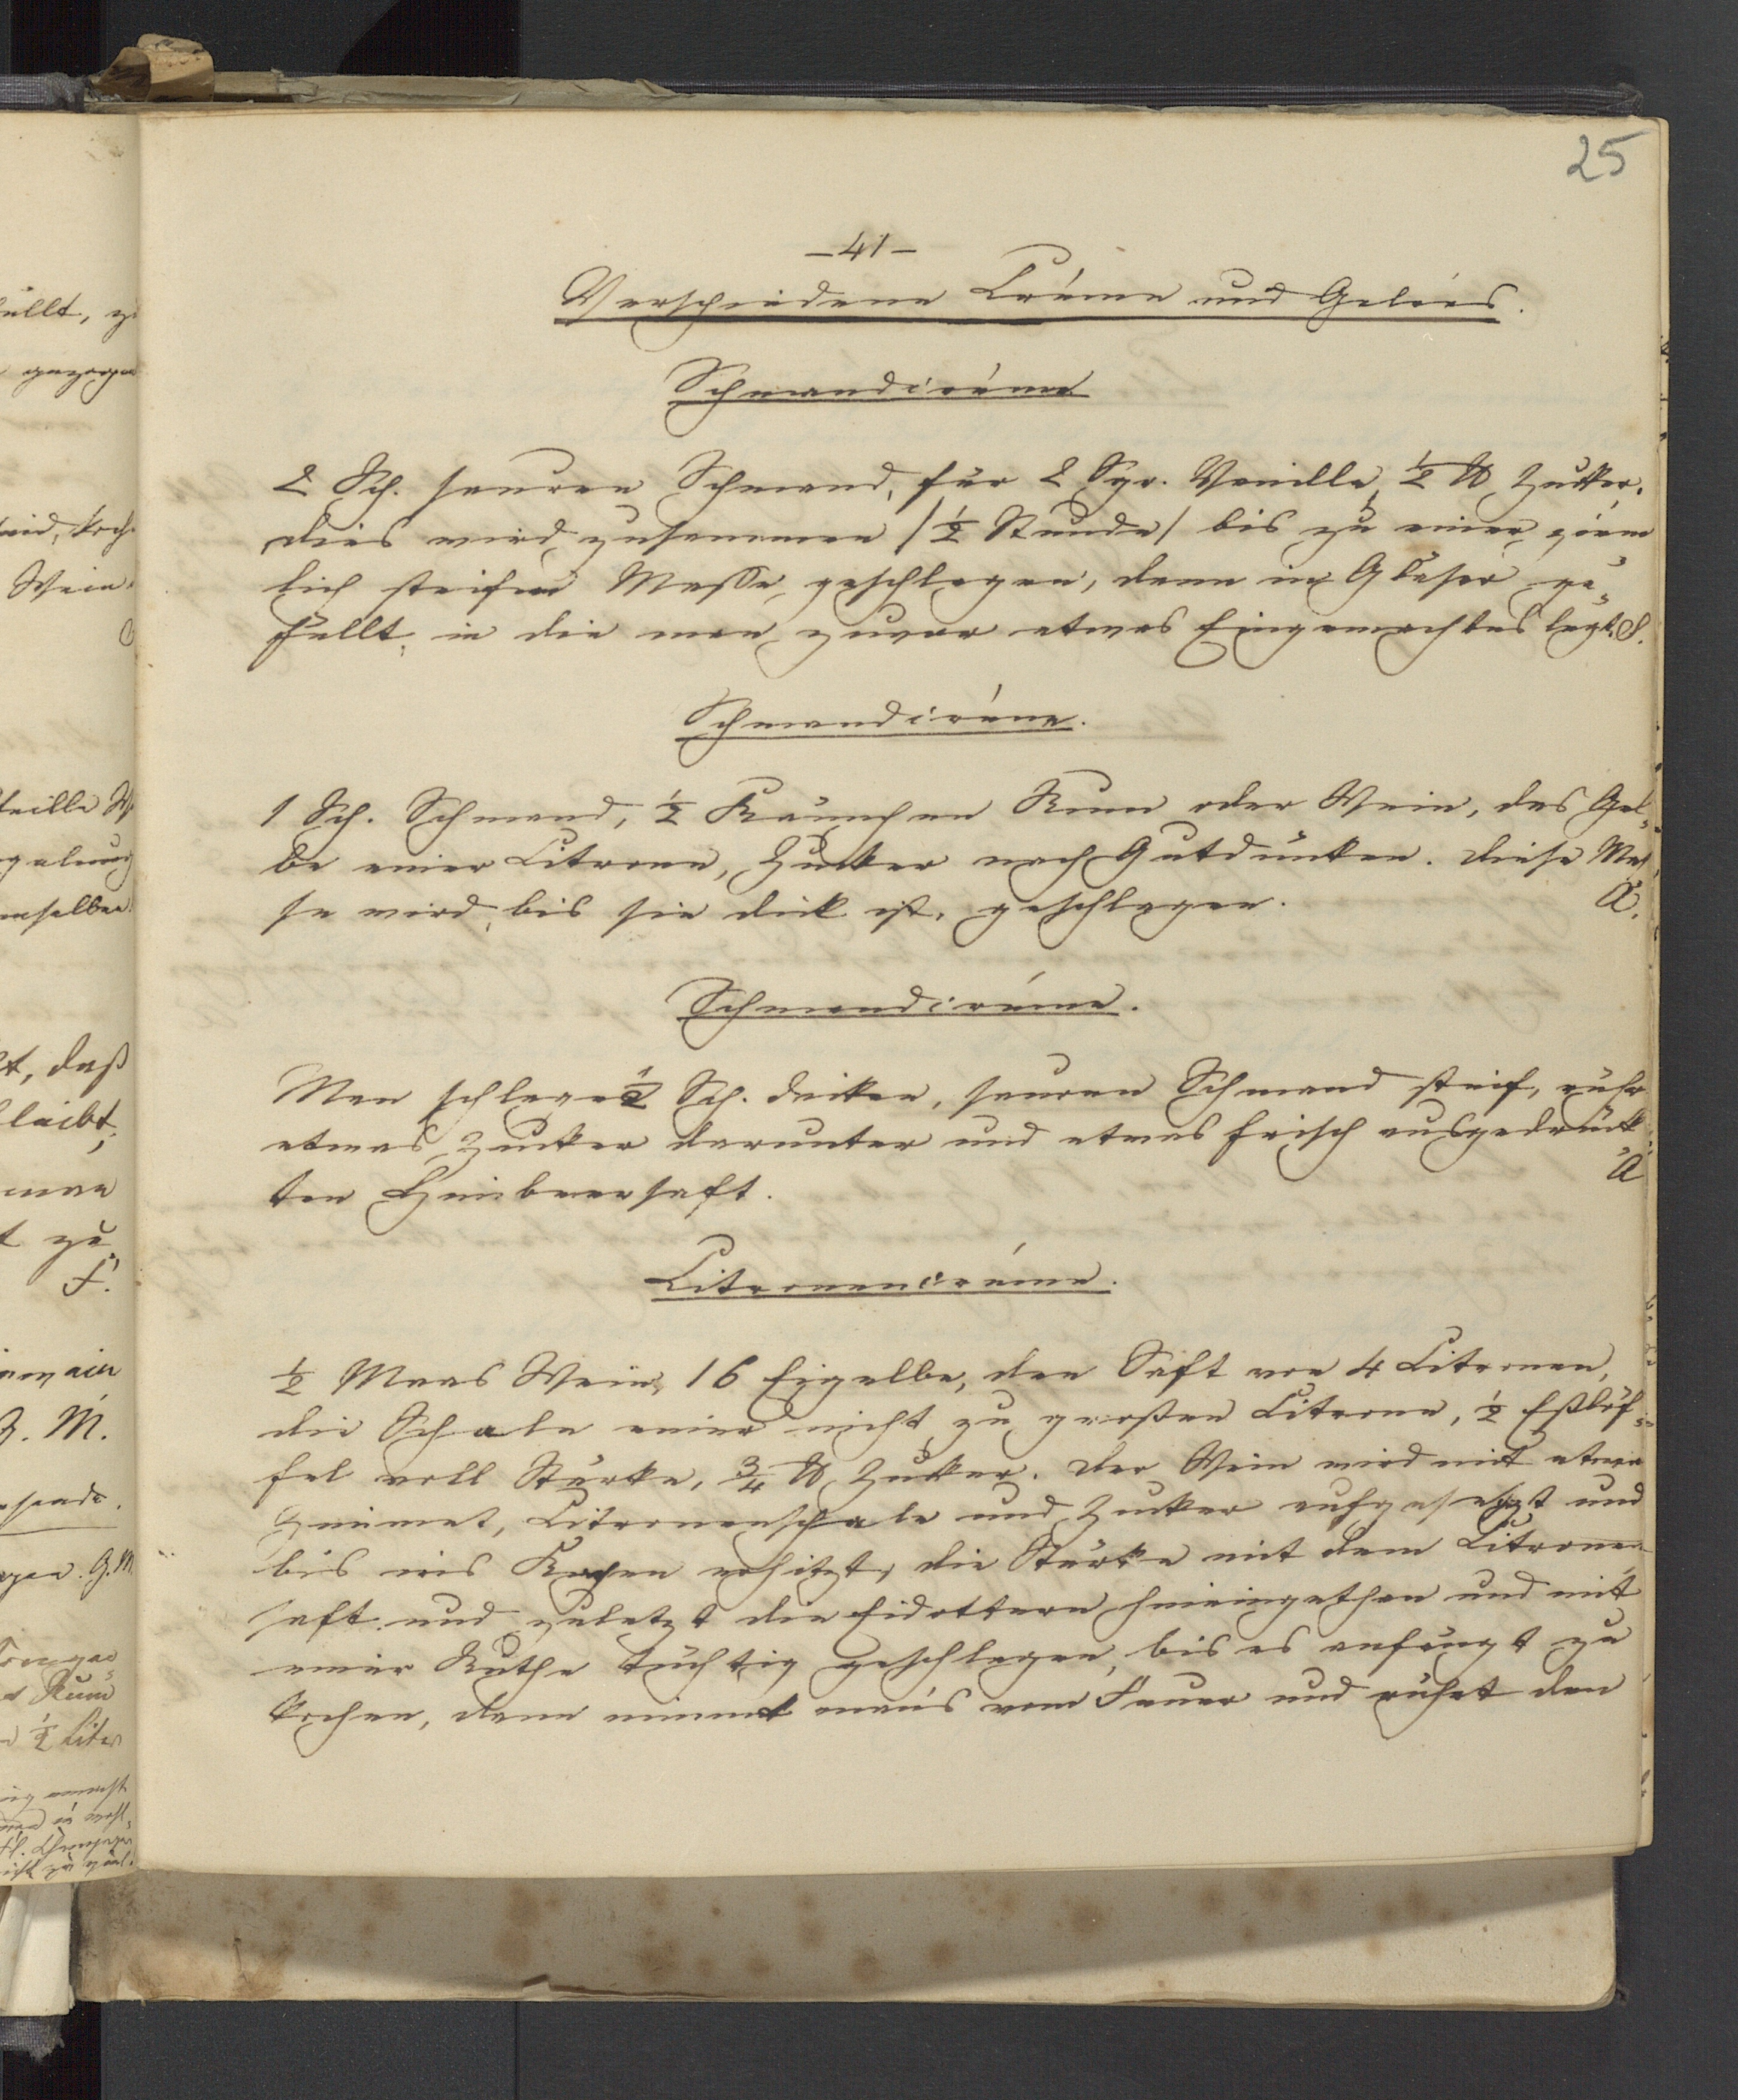 25
-41-
Verschiedene Créme und Gelées.
Schmandcréme
2 Sch. sauren Schmand, für 2 Sgr. Vanille, ½ ℔ Zucker.
dies wird zusammen /½ Stunde/ bis zu einer ziem
lich steifen Masse, geschlagen, dann in Gläser ge=
füllt, in die man zuvor etwas Eingemachtes legt. S.
Schmandcréme.
1 Sch. Schmand, ½ Känchen Rum oder Wein, das Gel=
be einer Citrone, Zucker nach Gutdünken. diese Mas
se wird, bis sie dick ist, geschlagen. A.
Schmandcréme.
Man schlage ½ Sch. dicken, sauren Schmand steif, rühr
etwas Zucker darunter und etwas frisch ausgedrück
ten Himbeersaft. A
Citronencréme.
½ Maas Wein, 16 Eigelbe, den Saft von 4 Citronen,
die Schale einer nicht zu großen Citrone, ½ Eßlöf=
fel voll Stärke, ¾ ℔ Zucker. der Wein wird mit etwas
Zimmet, Citronenschale und Zucker aufgesetzt und
bis ins Kochen erhitzt, die Stärke mit dem Citronen
saft und zuletzt die Eidottern hineingethan und mit
einer Ruthe tüchtig geschlagen, bis es anfängt zu
kochen, dann nimmt man's vom Feuer und rührt den